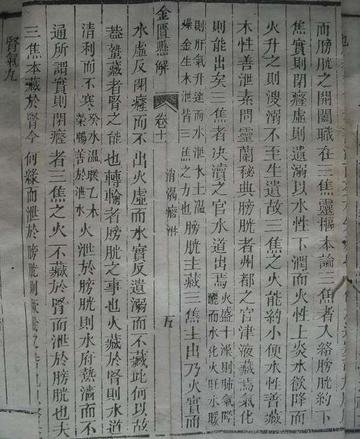 而膀胱之開闔職在三焦靈樞本論三焦者入絡膀胱約下
焦實則閉癃虛則遺溺以水性下潤而火性上炎水欲降而
火升之則溲溺不至生遺故三焦之火能約小便水性善藏
木性善泄素問靈蘭秘典膀胱者州都之官津液藏焉氣化
則能出矣三焦者決瀆之官水道出焉
則肝氣升達而水泄水土溫
燥金生水泄皆三焦之力也膀胱主藏三焦主出乃火實而
金匱懸解 卷十一 消渴癃淋 五
水虛反閉癃而不出火虛而水實反遺溺而不藏此何以故
蓋蟄藏者腎之能也轉輸者膀胱之事也火藏於腎則水道
清利而不寒
癸水溫暖乙木
升善於泄水
火泄於膀胱則水府熱濇而不
通所謂實則閉癃者三焦之火不藏於腎而泄於膀胱也夫
三焦本藏於腎今何緣而泄於膀胱則
腎氣九